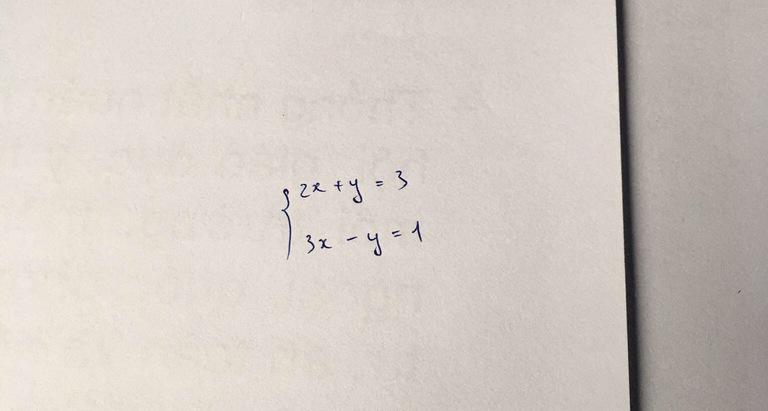 2x + y = 3
3x - y = 1